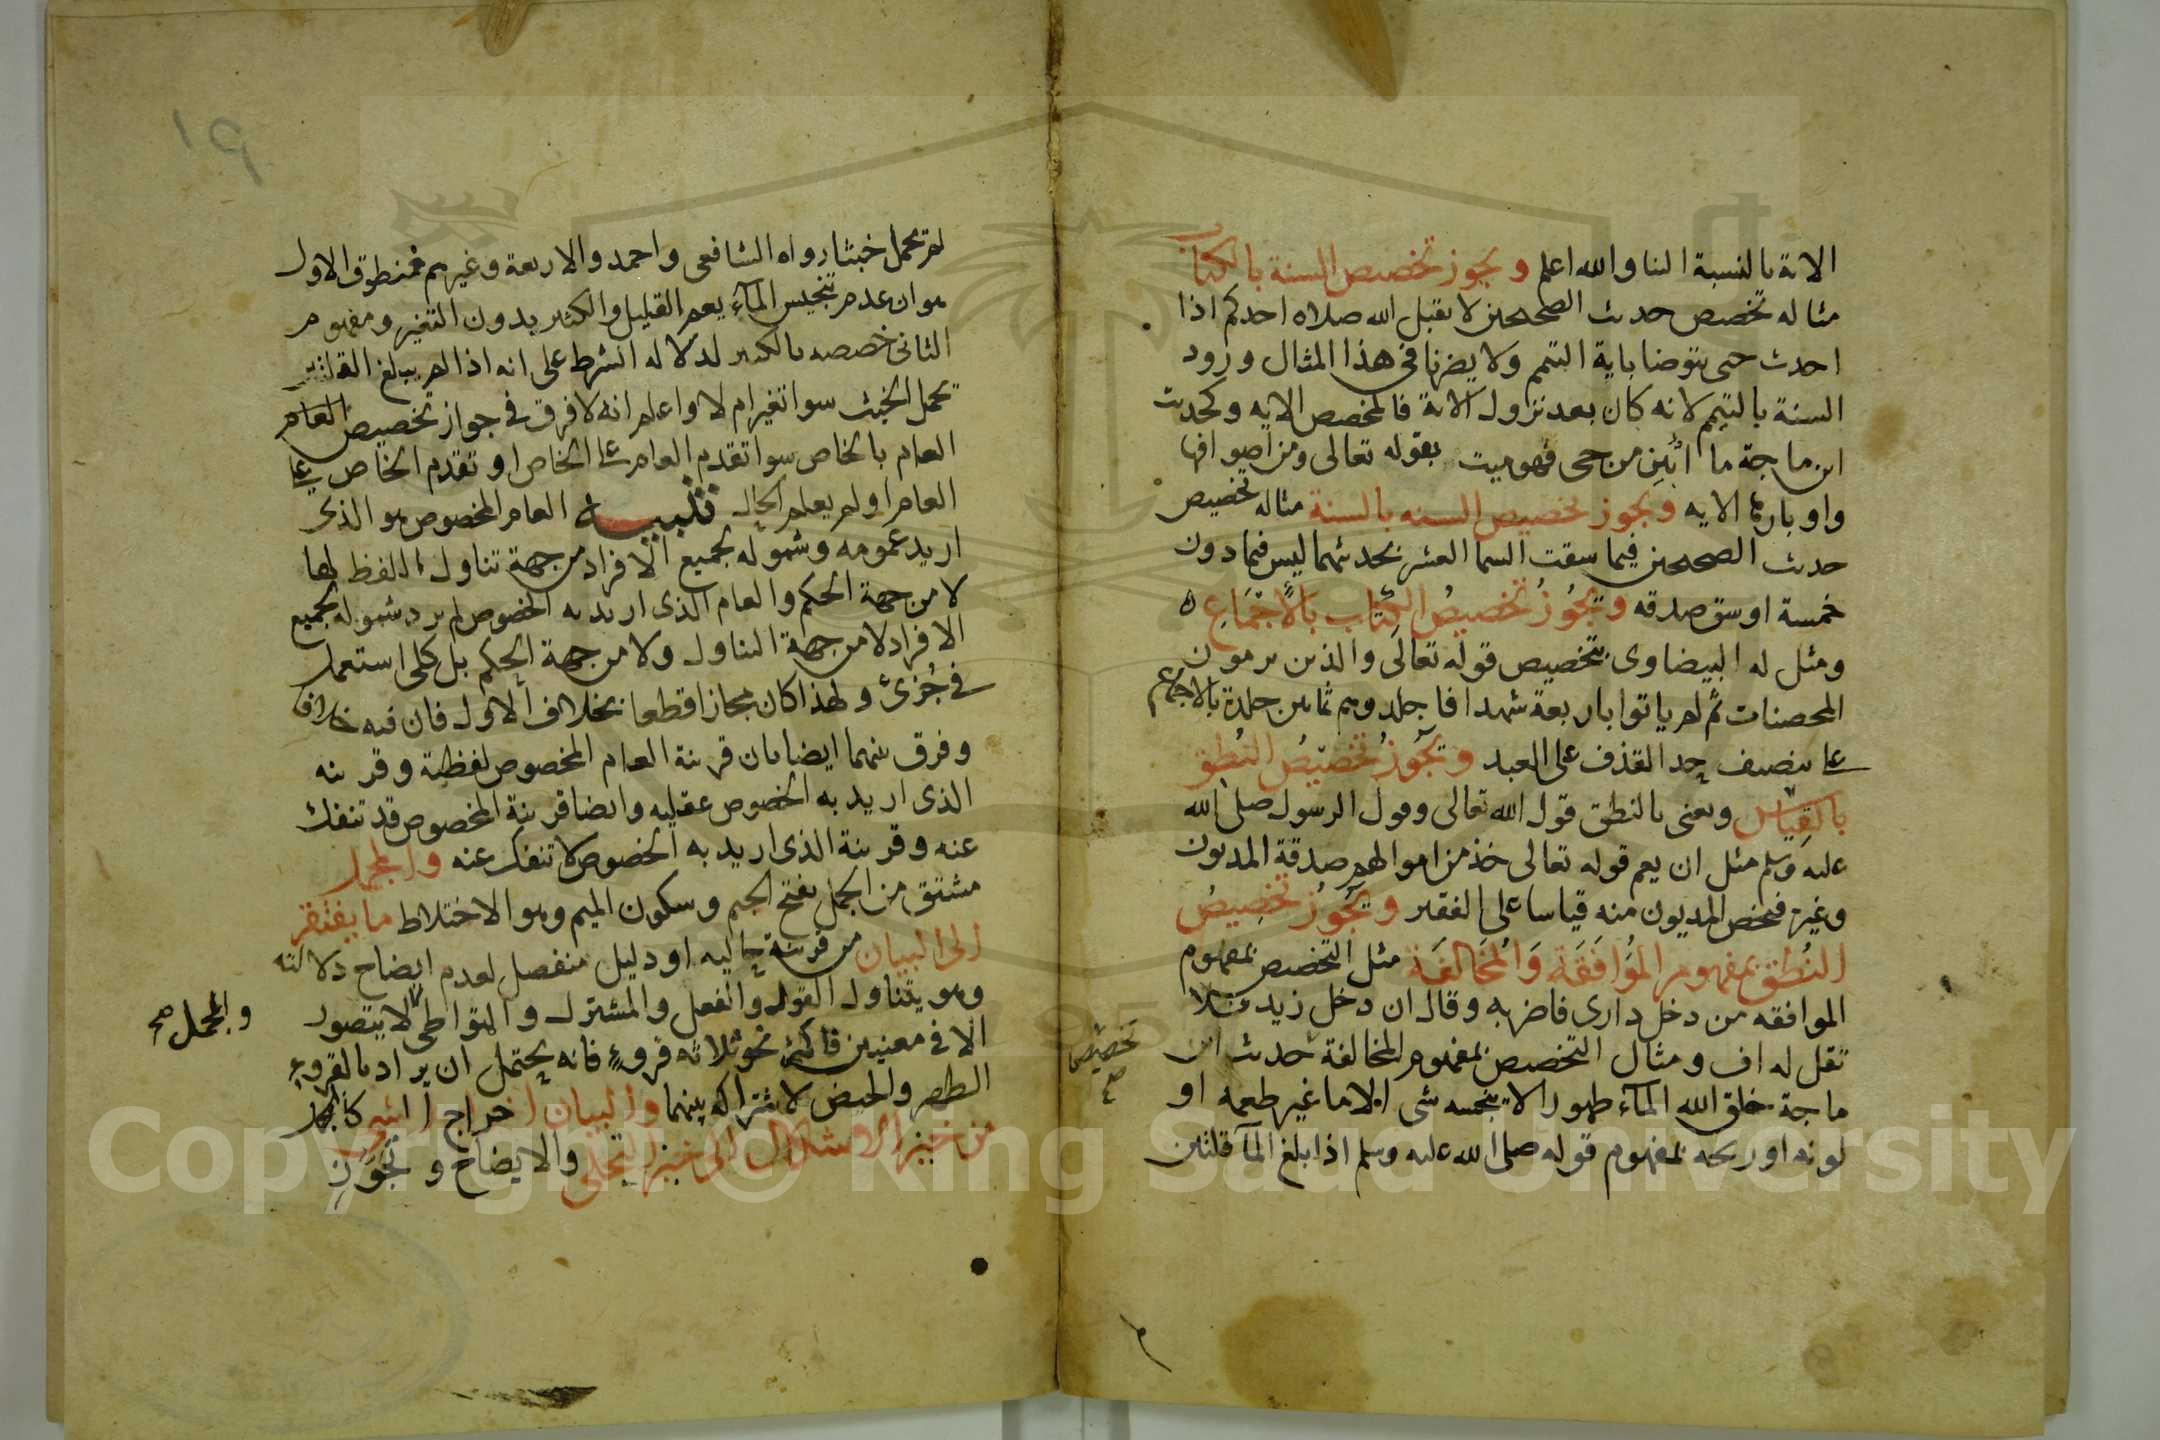 الاية بالنسبة الينا والله اعلم ويجوز تخصيص السنة بالكتاب
مثاله تخصيص حديث الصحيحين لا يقبل الله صلاه احدكم اذا
احدث حتى يتوضا باية التيمم ولا يضرنا في هذا المثال ورود
السنة بالتيمم لانه كان بعد نزول الاية فالمخصص الايه وكحديث
ابن ماجة ما ابين من حي فهو ميت بقوله تعالى ومن اصوافها
واوبارها الايه ويجوز تخصيص السنه بالسنة مثاله تخصيص
حديث الصحيحين فيما سقت السما العشر بحديثهما ليس فيما دون
خمسة اوسق صدقه ويَجُوزُ تخصيصُ الكِتاب بالاجمَاعِ ه
ومثل له البيضاوى بتخصيص قوله تعالى والذين يرمون
المحصنات ثم لم ياتوا باربعة شهدا فاجلدوهم ثمانين جلدة بالاجماع
على تنصيف حد القذف على العبد ويَجُوزُ تخصيصُ النُطق
بالقِيَاس ويعنى بالنطق قول الله تعالى وقول الرسول صلى الله
عليه وسلم مثل ان يعم قوله تعالى خذ من اموالهم صدقة المديون
وغيره فيخص المديون منه قياسا على الفقير ويَجُوزُ تخصِيصُ
النُطق بمفهوم المُوَافَقَة وَالمُخَالَفَة مثل التخصيص بمفهوم
الموافقه من دخل دارى فاضربه وقال ان دخل زيد فلا
تقل له اف ومثال التخصيص بمفهوم المخالفة حديث ابن
ماجة خلق الله الماء طهورا لا ينجسه شى الا ما غير طعمه او
لونه او ريحه بمفهوم قوله صلى الله عليه وسلم اذا بلغ المآ قلتين
تخصيص
صح
١٩
لم يحمل خبثا رواه الشافعى واحمد والاربعة وغيرهم فمنطوق الاول
هو ان عدم تنجيس المآء يعم القليل والكثير بدون التغير ومفهوم
الثانى خصصه بالكثير لدلاله الشرط على انه اذا لم يبلغ القلتين
يحمل الخبث سوا تغير ام لا واعلم انه لا فرق في جواز تخصيص العام
العام بالخاص سوا تقدم العام على الخاص او تقدم الخاص على
العام او لم يعلم الحال تنبيــه العام المخصوص هو الذى
اريد عمومه وشموله لجميع الافراد من جهة تناول اللفظ لها
لا من جهة الحكم والعام الذى اريد به الخصوص لم يرد شموله لجميع
الافراد لا من جهة التناول ولا من جهة الحكم بل كلى استعمل
في جُزئ ولهذا كان مجازا قطعا بخلاف الاول فان فيه خلاف
وفرق بينهما ايضا بان قرينة العام المخصوص لفظية وقرينه
الذى اريد به الخصوص عقليه وايضا قرينة المخصوص قد تنفك
عنه وقرينة الذى اريد به الخصوص لا تنفك عنه والمجمل
مشتق من الجمل بفتح الجيم وسكون الميم وهو الاختلاط ما يفتقر
الى البيان من قرينة حاليه او دليل منفصل لعدم ايضاح دلالته
وهو يتناول القول والفعل والمشترك والمتواطى لا يتصور
الا في معنيين فاكثر نحو ثلاثه قروء فانه يحتمل ان يراد بالقروء
الطهر والحيض لاشتراكه بينهما والبيان اخراج الشى
من حيز الاشكال الى حيز التجلى والايضاح
والمجمل صح
Copyright © King Saud University